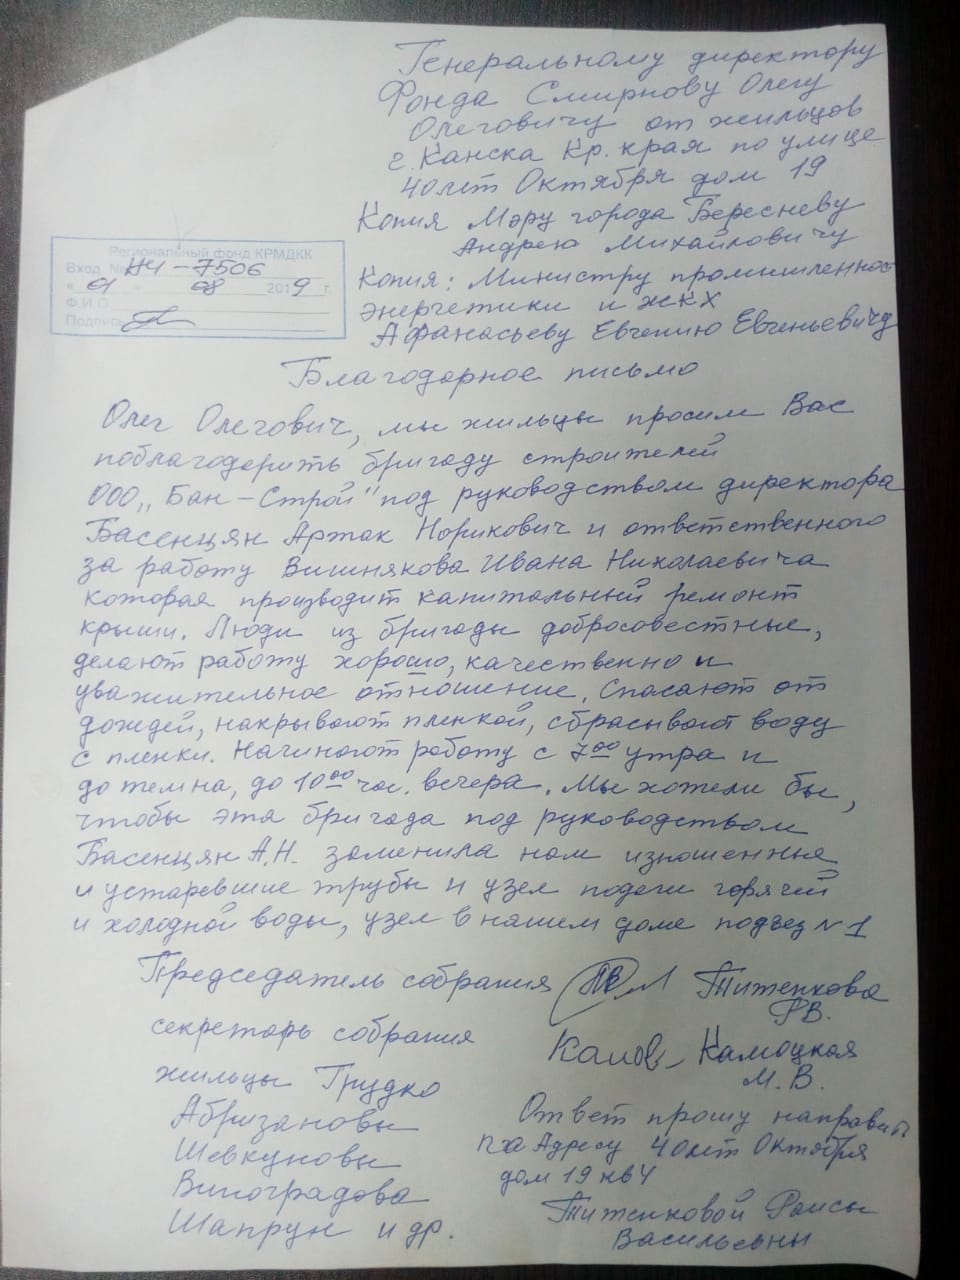 Генеральному директору
Фонда Смирнову Олегу
Олеговичу от жильцов
г. Канска Кр. края по улице
40 лет Октября дом 19
Копия Мэру города Бересневу
Андрею Михайловичу
Копия: Министру промышленнос
энергетики и ЖКХ
Афанасьеву Евгению Евгеньевичу
Региональный фонд КРМДКК
Вход. № НЧ-7506
« 01 » 08 2019 г.
Ф.И.О.
Подпись
Благодарное письмо
Олег Олегович, мы жильцы просим Вас
поблагодарить бригаду строителей
ООО „Бан-Строй" под руководством директора
Басенцян Артак Норикович и ответственного
за работу Вишнякова Ивана Николаевича
которая производит капитальный ремонт
крыши. Люди из бригады добросовестные,
делают работу хорошо, качественно и
уважительное отношение. Спасают от
дождей, накрывают пленкой, сбрасывают воду
с пленки. Начинают работу с 7⁰⁰ утра и
до темна, до 10⁰⁰ час. вечера. Мы хотели бы,
чтобы эта бригада под руководством
Басенцян А.Н. заменила нам изношенные
и устаревшие трубы и узел подачи горячей
и холодной воды, узел в нашем доме подъезд №1
Председатель собрания Титенкова
Р.В.
секретарь собрания Камоцкая
М.В.
жильцы Грудко
Абризановы
Шевкуновы
Виноградова
Шапрун и др.
Ответ прошу направить
по Адресу 40 лет Октября
дом 19 кв 4
Титенковой Раисы
Васильевны